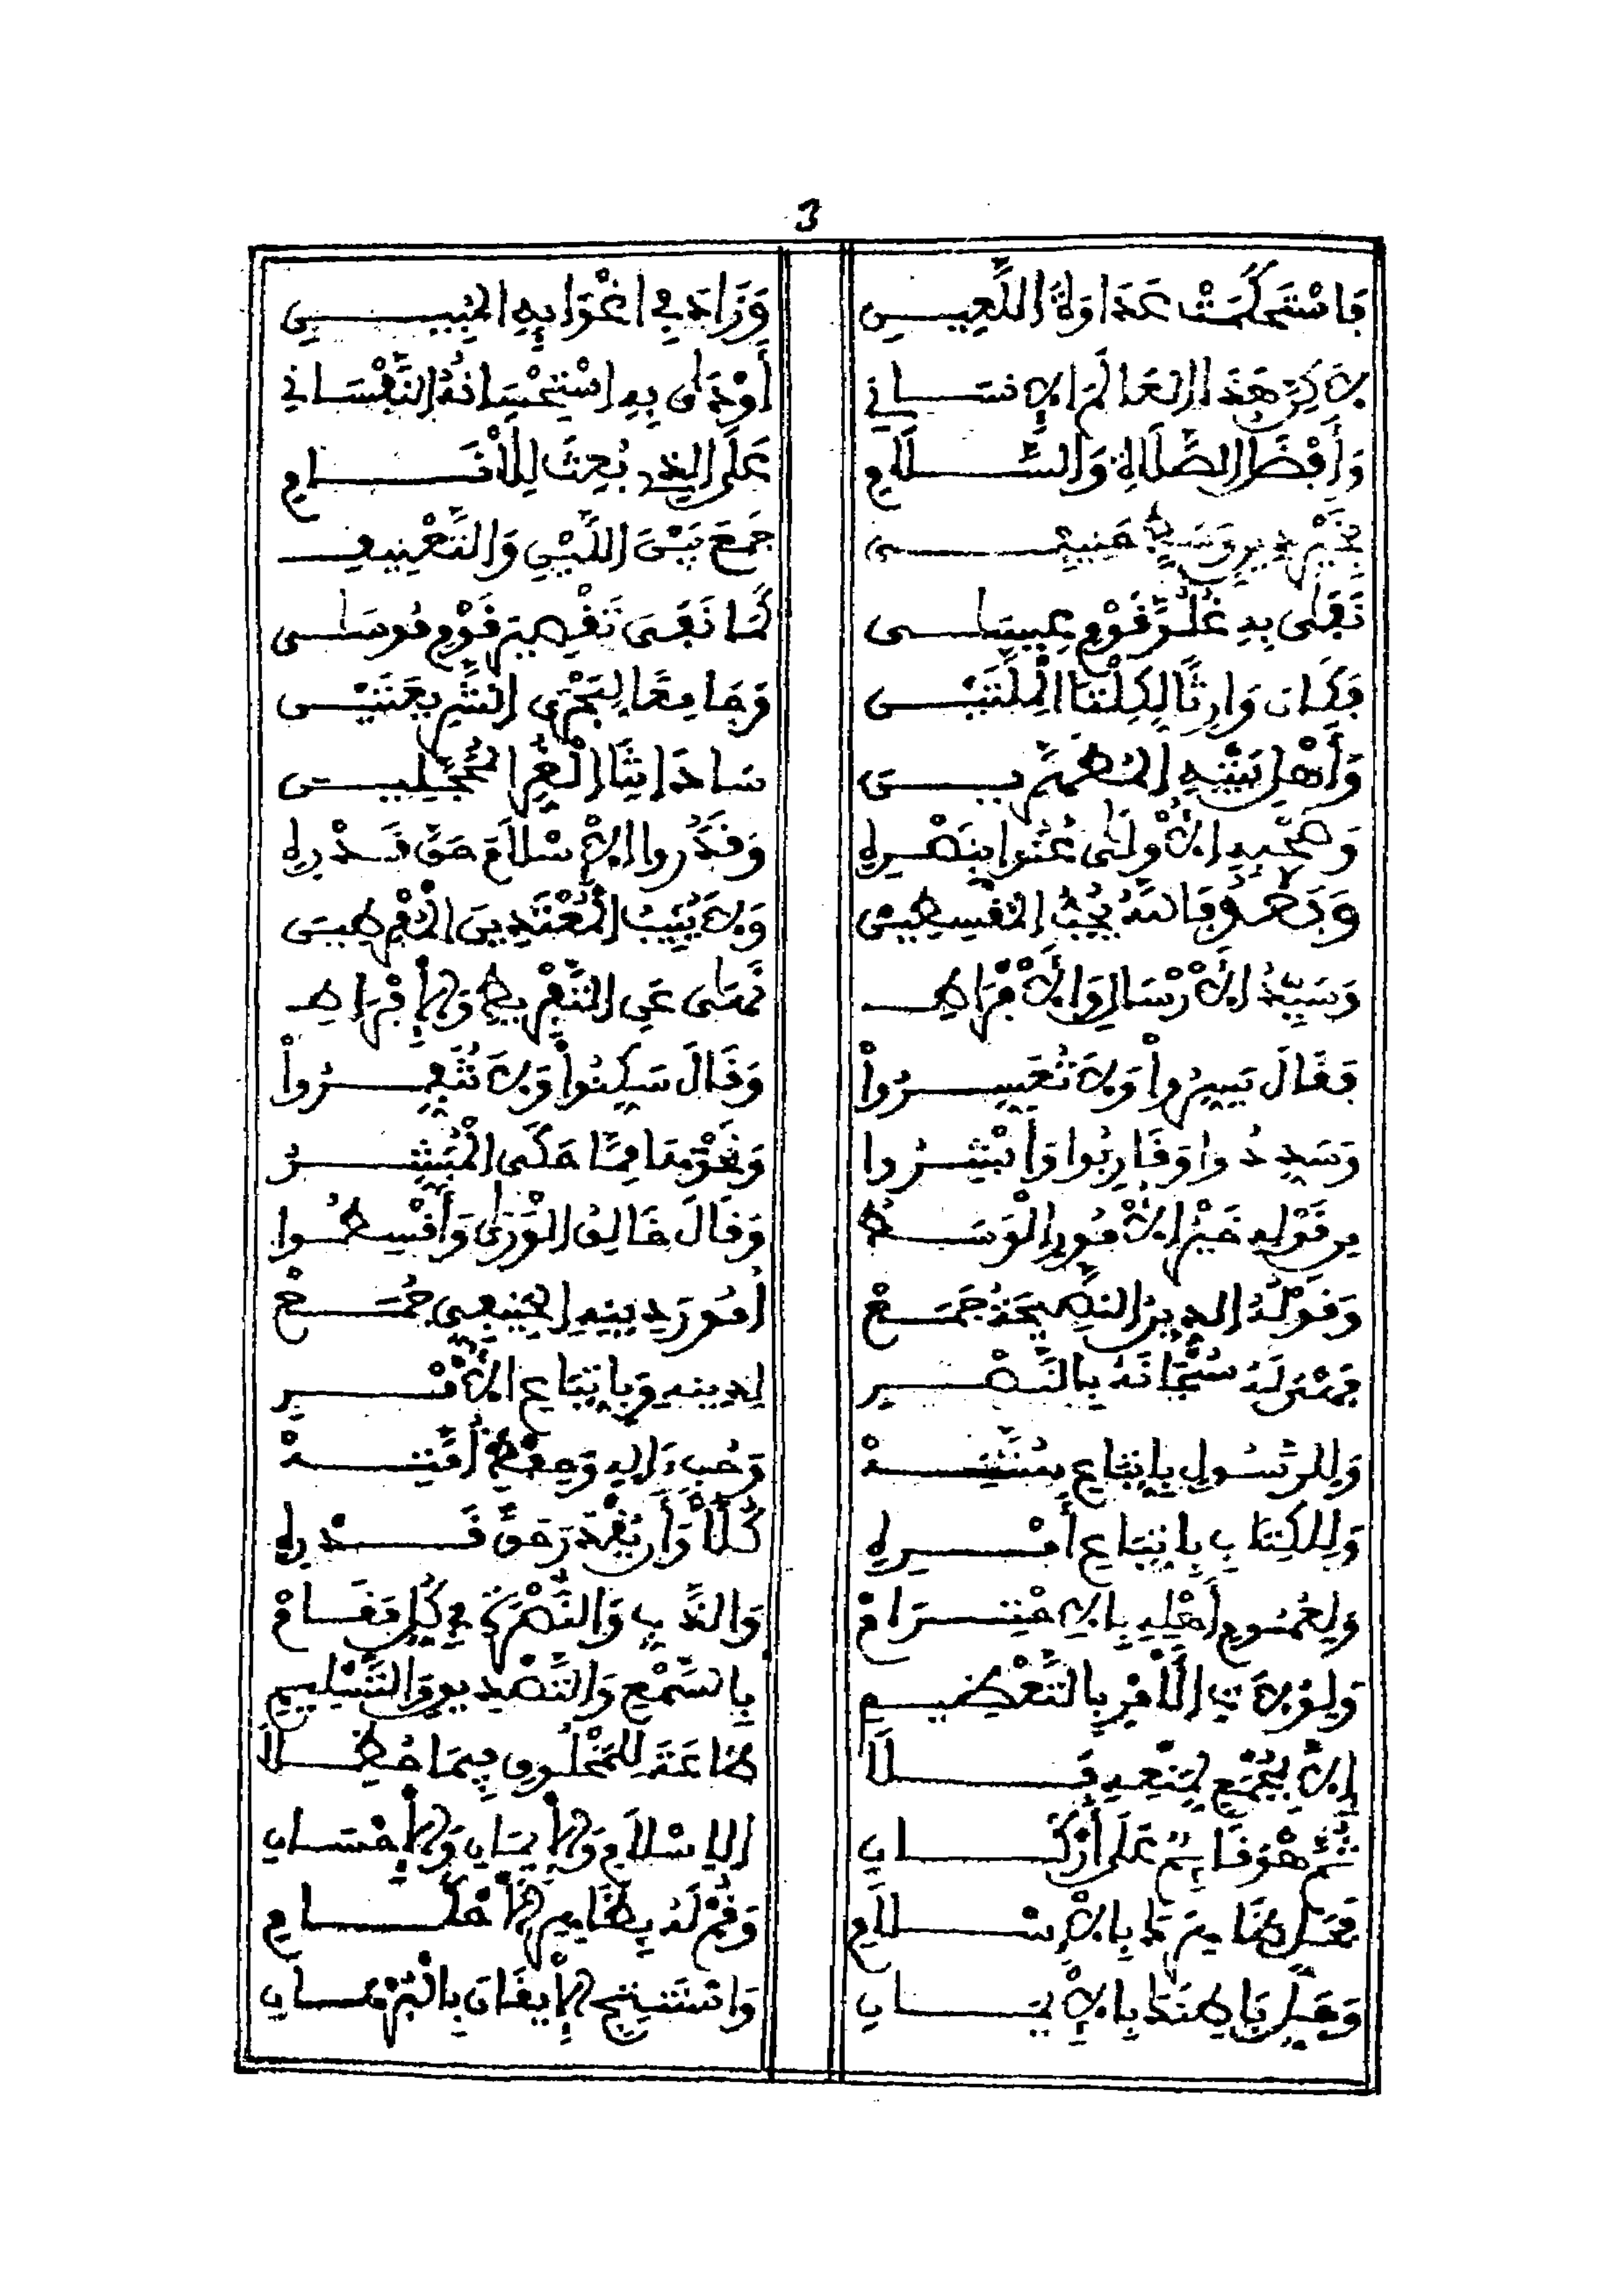 3
فَاسْتَحْكَمَتْ عَدَاوَةُ اللَّعِينِ وَزَادَ فِي اغْوَايِهِ الْمُبِينِ
لَاكِنَّ هَذَا الْعَالَمَ الْإِنسَانِي أَوْدَى بِهِ اسْتِحْسَانُهُ النَّفْسَانِي
وَأَفْضَلُ الصَّلَاةِ وَالسَّلَامِ عَلَى الَّذِي بُعِثَ لِلْأَنَامِ
بِخَيْرِ دِينٍ وَسَطٍ حَنِيفِ جَمَعَ بَيْنَ اللَّيْنِ وَالتَّعْنِيفِ
نَفَى بِهِ غُلُوَّ قَوْمِ عِيسَى كَمَا نَفَى تَقْصِيرَ قَوْمِ مُوسَى
فَكَانَ وَارِثًا لِكِلْتَا الْمِلَّتَيْنِ وَجَامِعًا لِـ
وَأَهْلِ بَيْتِهِ الْمُطَهَّرِينَ سَادَاتِنَا الْغُرِّ الْمُحَجَّلِينَ
وَصَحْبِهِ الْأُولَى عُنُوا بِنَصْرِهِ وَقَدَّرُوا الْإِسْلَامَ حَقَّ قَدْرِهِ
وَبَعْدُ فَاللَّهُ يُحِبُّ الْمُقْسِطِينَ وَلَا يُثِيبُ الْمُعْتَدِينَ الْمُفْرِطِينَ
وَسَيِّدُ الْأَرْسَالِ وَالْأَفْرَاطِ نَهَى عَنِ التَّفْرِيطِ وَالْإِفْرَاطِ
فَقَالَ يَسِّرُواْ وَلَا تُعَسِّرُواْ وَقَالَ سَكِّنُواْ وَلَا تُنَفِّرُواْ
وَسَدِّدُوا وَقَارِبُوا وَأَبْشِرُوا وَنَحْوِهَا مِمَّا حَكَى الْمُبَشِّرُ
مِن قَوْلِهِ خَيْرُ الْأُمُورِ الْوَسَطُ وَقَالَ خَالِقُ الْوَرَى وَأَقْسِطُوا
وَقَوْلُهُ الدِّينُ النَّصِيحَةُ جَمَعْ أُمُورَ دِينِهِ الْحَنِيفِيِّ جُمَعْ
فَمَنْ لَهُ سُبْحَانَهُ بِالنَّصْرِ لِدِينِهِ وَبِاتِّبَاعِ الْأَمْرِ
وَلِلرَّسُولِ بِاتِّبَاعِ سُنَّتِهْ وَحُبِّ ءَالِهِ وَحِفْظِ أُمَّتِهْ
وَلِلْكِتَابِ بِاتِّبَاعِ أَمْرِهِ كُلًّا وَأَن يُقْدَرَ حَقَّ قَدْرِهِ
وَلِعُمُومِ أَهْلِهِ بِالِاحْتِرَامْ وَالذَّبِّ وَالنُّصْرَةِ فِي كُلِّ مَقَامْ
وَلِوُلَاةِ الْأَمْرِ بِالتَّعْظِيمِ بِالسَّمْعِ وَالتَّصْدِيقِ وَالتَّسْلِيمِ
إِلَّا بِجَمْعٍ لِمَنْعِهِ فَلَا طَاعَةَ لِلْمَخْلُوقِ فِيمَا حُظِلَا
ثُمَّ هُوَ قَائِمٌ عَلَى أَرْكَانِ الِاسْلَامِ وَالْإِيمَانِ وَالْإِحْسَانِ
فَحَلِّ ظَاهِرَكَ بِالْإِسْلَامِ وَقُمْ لَهُ بِظَاهِرِ الْأَحْكَامِ
وَحَلِّ بَاطِنَكَ بِالْإِيمَانِ وَاسْتَنْتِجِ الْإِيقَانَ بِالْبُرْهَانِ